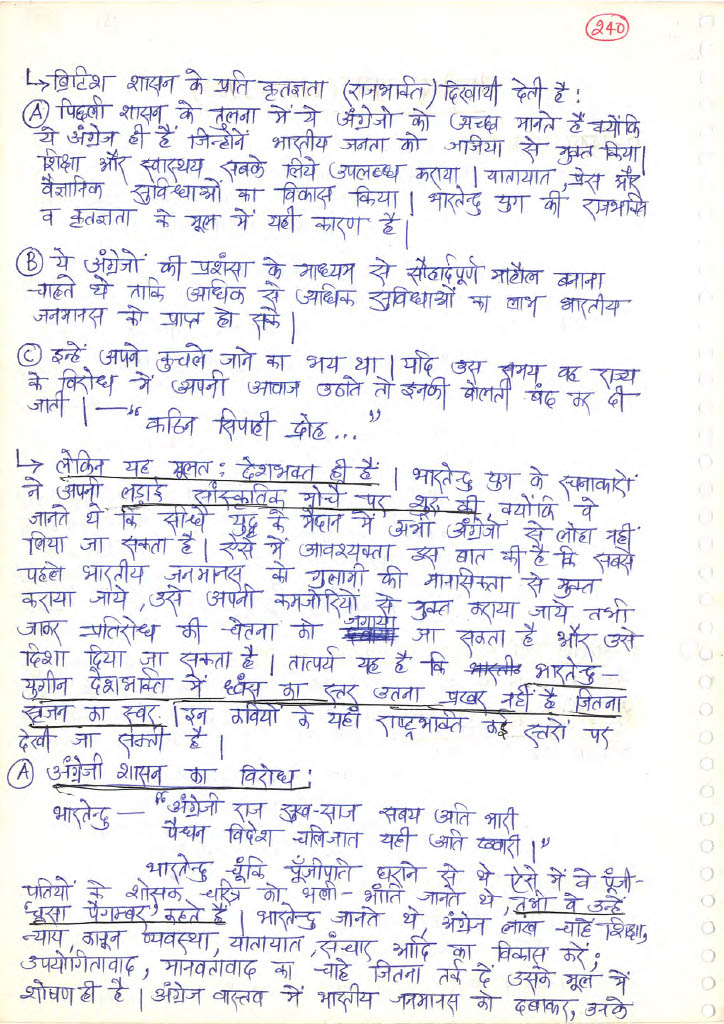 240
↳ ब्रिटिश शासन के प्रति कृतज्ञता (राजभक्ति) दिखायी देती है :
(A) पिछली शासन के तुलना में ये अंग्रेजों को अच्छा मानते हैं क्योंकि
ये अंग्रेज ही हैं जिन्होंनें भारतीय जनता को जजिया से मुक्त किया।
शिक्षा और स्वास्थय सबके लिये उपलब्ध कराया। यातायात, प्रेस और
वैज्ञानिक सुविधाओं का विकास किया। भारतेन्दु युग की राजभक्ति
व कृतज्ञता के मूल में यही कारण है।
(B) ये अंग्रेजों की प्रशंसा के माध्यम से सौहार्दपूर्ण माहौल बनाना
चाहते थे ताकि अधिक से अधिक सुविधाओं का लाभ भारतीय
जनमानस को प्राप्त हो सके।
(C) इन्हें अपने कुचले जाने का भय था। यदि उस समय वह राज्य
के विरोध में अपनी आवाज उठाते तो इनकी बोलती बंद कर दी
जाती। — "कठिन सिपाही द्रोह..."
↳ लेकिन यह मूलत: देशभक्त ही हैं। भारतेन्दु युग के रचनाकारों
ने अपनी लड़ाई सांस्कृतिक मोर्चे पर शुरू की, क्योंकि वे
जानते थे कि सीधे युद्ध के मैदान में अभी अंग्रेजों से लोहा नहीं
लिया जा सकता है। ऐसे में आवश्यकता इस बात की है कि सबसे
पहले भारतीय जनमानस को गुलामी की मानसिकता से मुक्त
कराया जाये, उसे अपनी कमजोरियों से मुक्त कराया जाये तभी
जाकर प्रतिरोध की चेतना को जगाया जा सकता है और उसे
दिशा दिया जा सकता है। तात्पर्य यह है कि भारतेन्दु-
युगीन देशभक्ति में ध्वंस का स्तर उतना प्रखर नहीं है जितना
सृजन का स्वर। इन कवियों के यहाँ राष्ट्रभक्ति कई स्तरों पर
देखी जा सकती है।
(A) अंग्रेजी शासन का विरोध :
भारतेन्दु — "अंग्रेजी राज सुख-साज सबय अति भारी
पैधन विदेश चलिजात यही अति ख्वारी।"
भारतेन्दु चूंकि पूँजीपति घराने से थे ऐसे में वे पूंजी-
पतियों के शोसक चरित्र को भली-भाँति जानते थे, तभी वे उन्हें
'घूसा पैगम्बर' कहते हैं। भारतेन्दु जानते थे, अंग्रेज लाख चाहें शिक्षा,
न्याय, कानून व्यवस्था, यातायात, संचार आदि का विकास करें;
उपयोगितावाद, मानवतावाद का चाहे जितना तर्क दें उसके मूल में
शोषण ही है। अंग्रेज वास्तव में भारतीय जनमानस को दबाकर, उनके